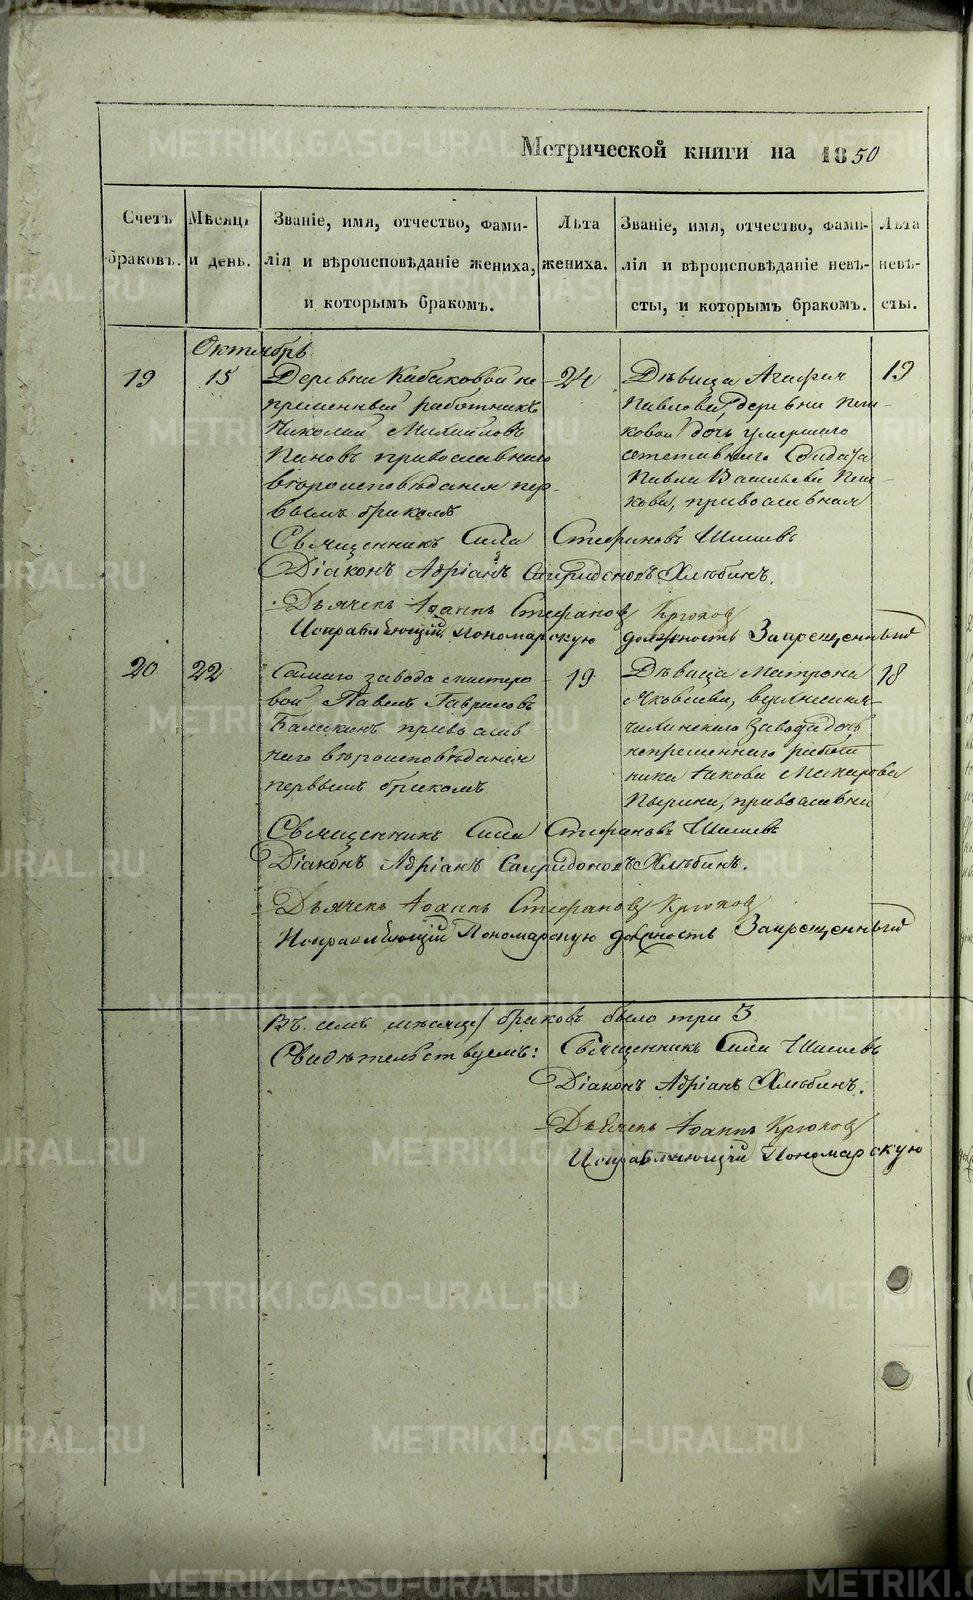 Метрической книги на 1850
Счетъ браковъ.
Мѣсяцъ и день.
Званіе, имя, отчество, фами-
лія и вѣроисповѣданіе жениха,
и которымъ бракомъ.
Лѣта
жениха.
Званіе, имя, отчество, фами-
лія и вѣроисповѣданіе невѣ-
сты, и которымъ бракомъ.
Лѣта
невѣ-
сты.
Октябрь
19
15
Деревни Кабаковой не
премѣнный работникъ
Николай Михайловъ
Пановъ православнаго
вѣроисповѣданія пер-
вымъ бракомъ
24
Дѣвица Агафія
Павлова, деревни
дочь умершаго
отставнаго Солдата
Павла Васильева
православная
19
Священникъ Сила Стефановъ Шишевъ
Діаконъ Адріанъ Спиридоновъ Хлѣбинъ.
Дьячекъ Іоаннъ Стефановъ Крюковъ
Исправляющій Пономарскую должность Запрещенный
20
22
Самаго завода мастеро
вой Павелъ Гавриловъ
православ
наго вѣроисповѣданія
первымъ бракомъ
19
Дѣвица Матрона
Яковлева,
завода дочь
непремѣннаго работ
ника Іакова Макарова
Пырина, православна
18
Священникъ Сила Стефановъ Шишевъ
Діаконъ Адріанъ Спиридоновъ Хлѣбинъ.
Дьячекъ Іоаннъ Стефановъ Крюковъ
Исправляющій Пономарскую должность Запрещенный
Въ семъ мѣсяцѣ браковъ было три 3
Свидѣтельствуемъ: Священникъ Сила Шишевъ
Діаконъ Адріанъ Хлѣбинъ.
Дьячекъ Іоаннъ Крюковъ
Исправляющій Пономарскую
METRIKI.GASO-URAL.RU